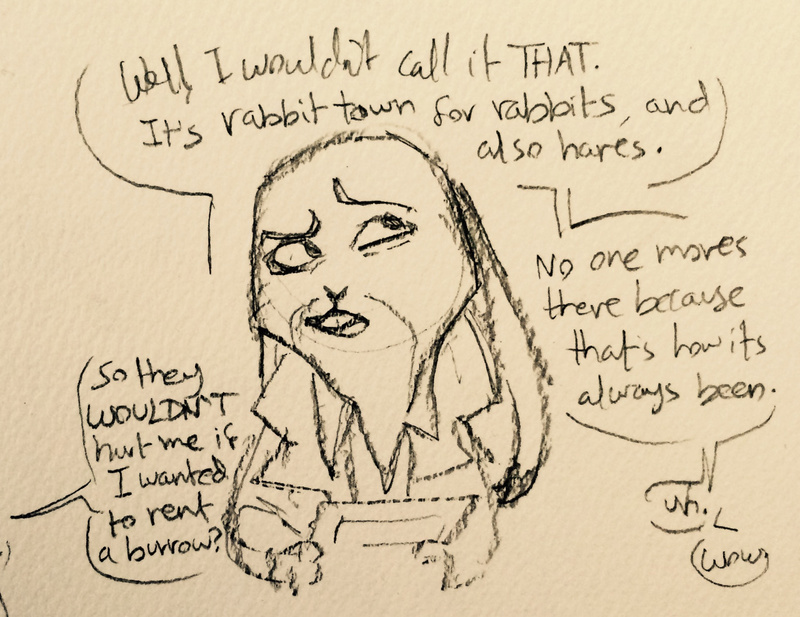 Well, I wouldn't call it THAT.
It's rabbit town for rabbits, and
also hares.
So they
WOULDN'T
hurt me if
I wanted
to rent
a burrow?
No one moves
there because
that's how its
always been.
uh.
wow.